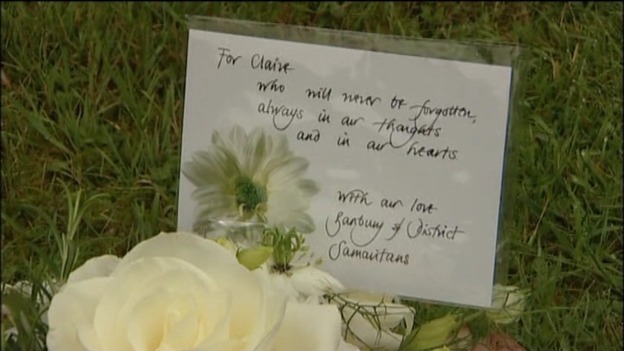 For Claire
who will never be forgotten,
always in our thoughts
and in our hearts
With our love
Banbury & District
Samaritans